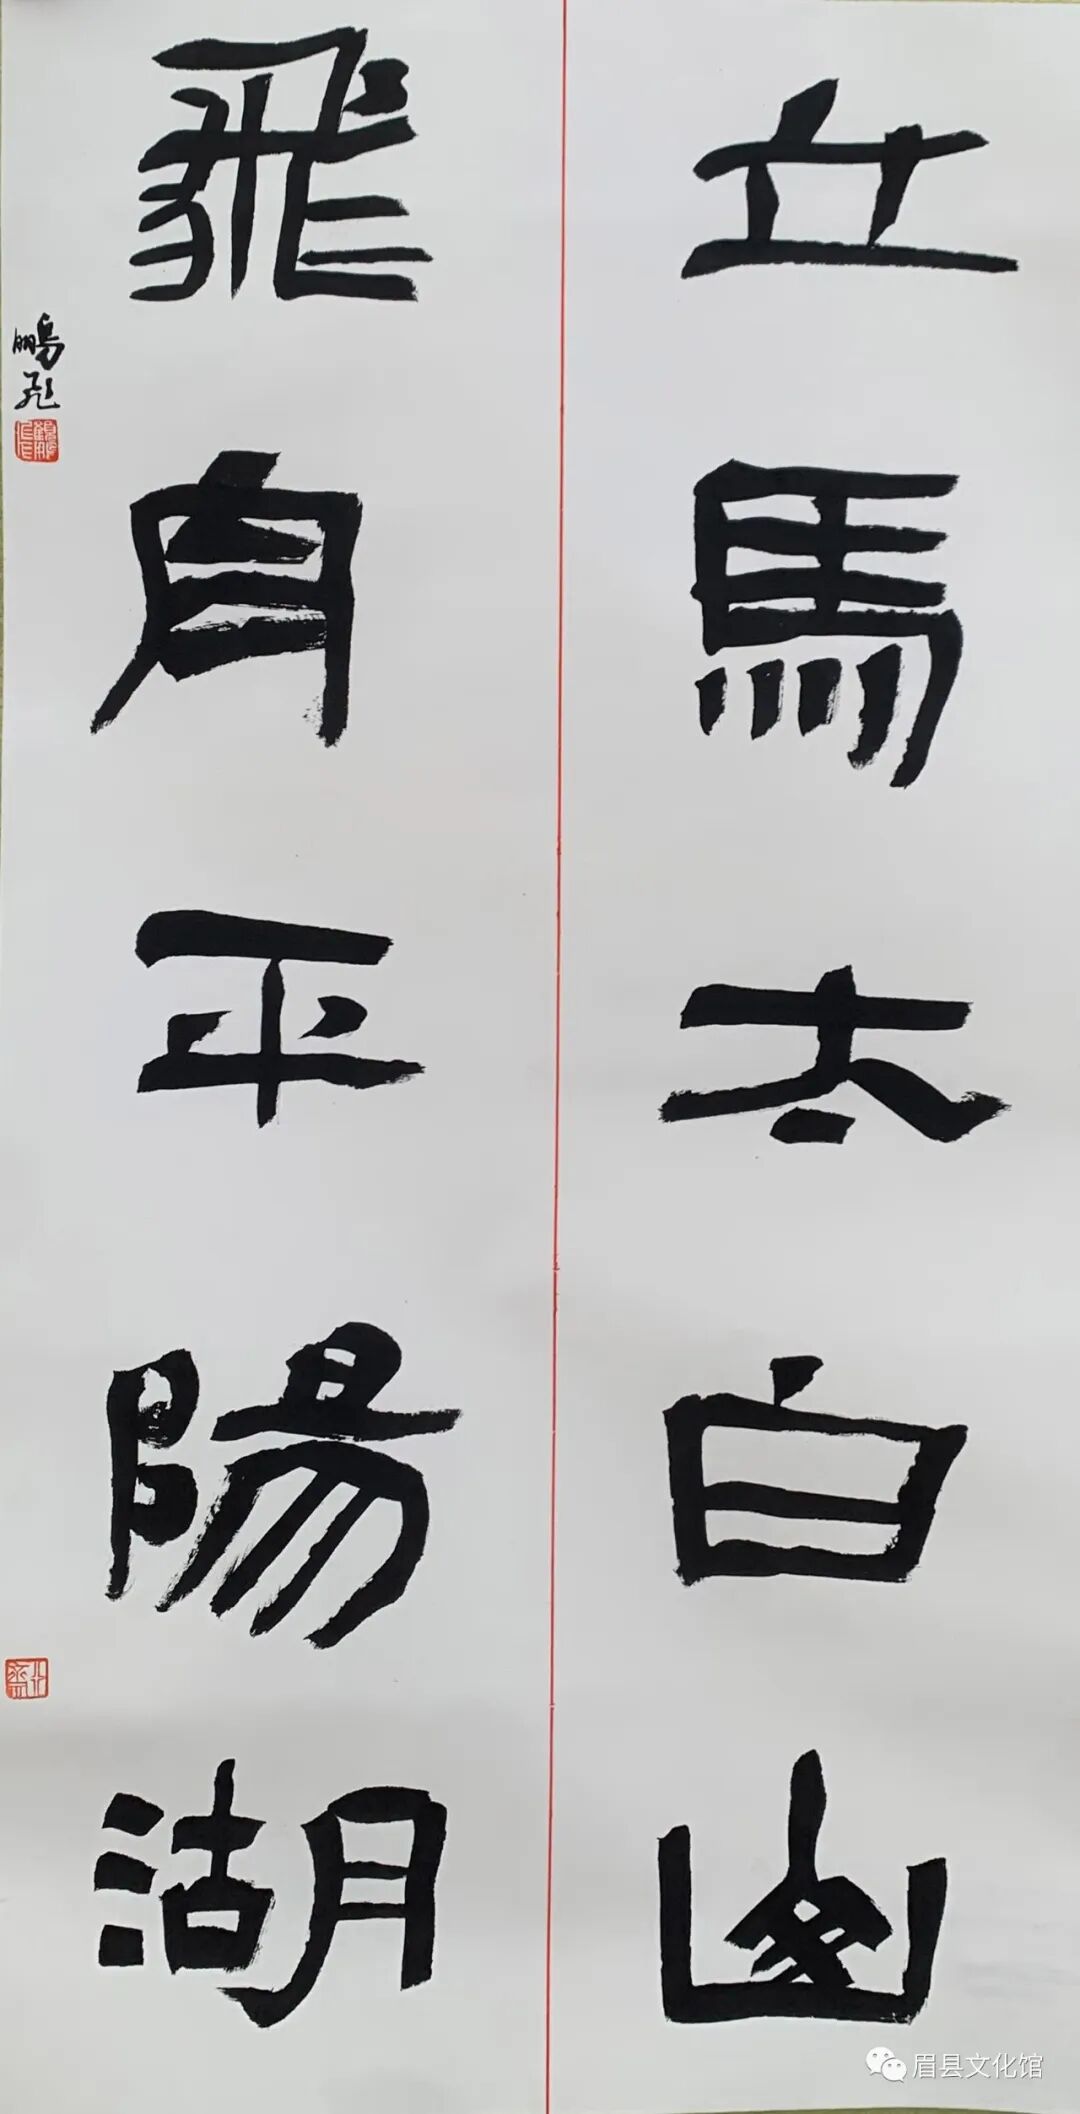 立馬太白山
飛舟平陽湖
鵬飛
眉县文化馆